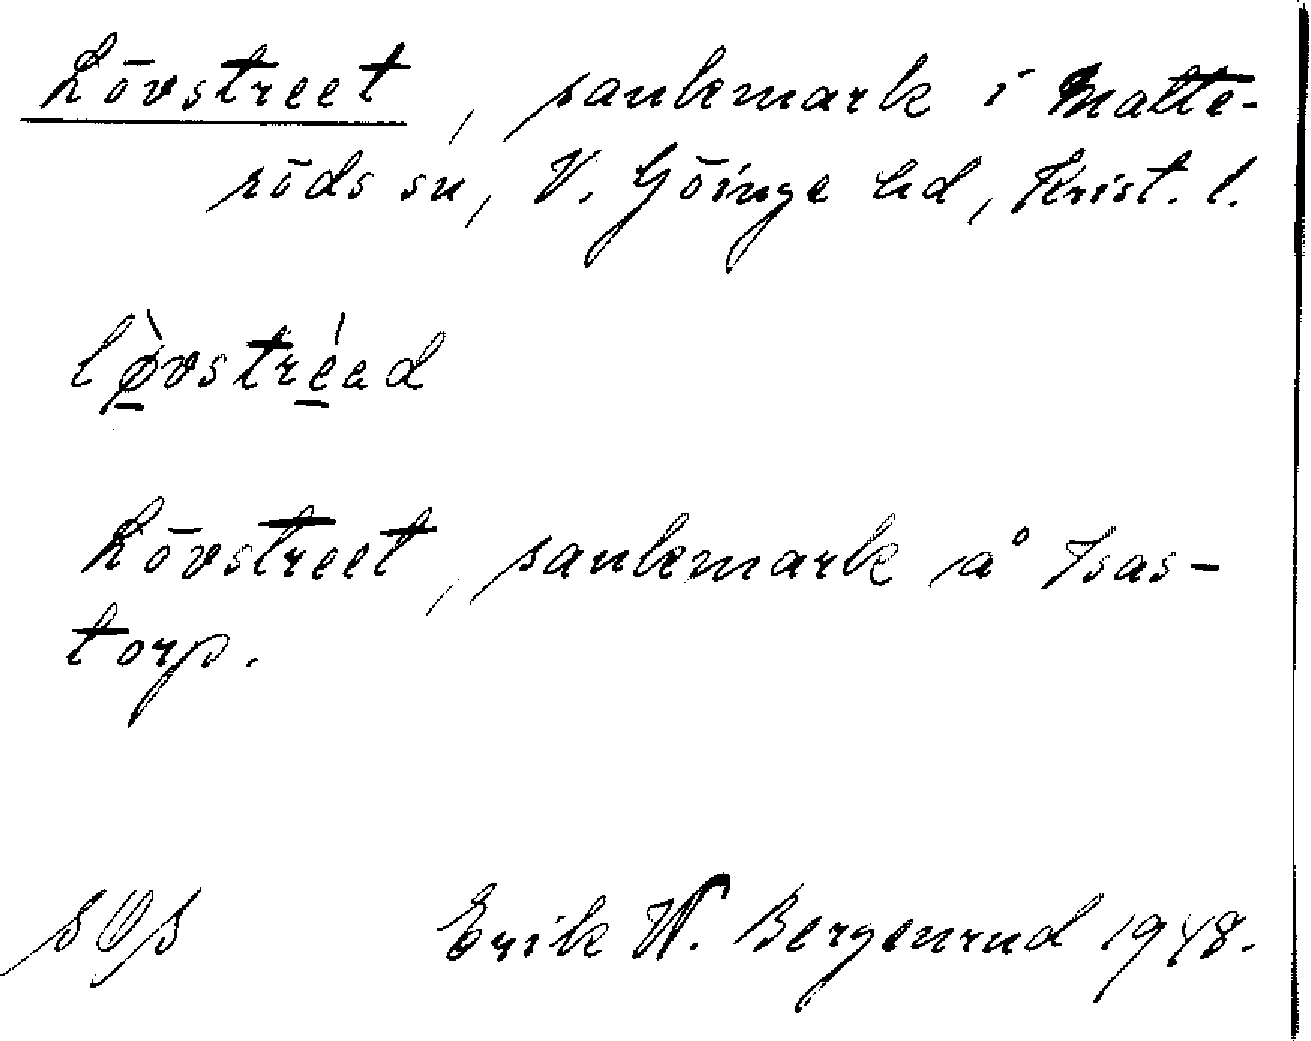 Lövstreet, sankmark i Matte-
röds sn, V. Göinge hd, Krist. l.
lø̀vstréad
Lövstreet, sankmark å Isas-
torp.
Erik W. Bergenrud 1948.